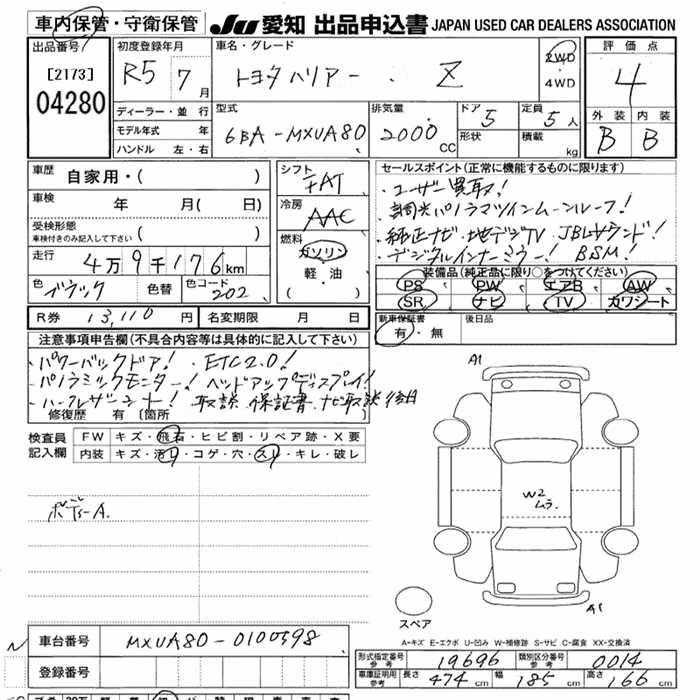 車内保管・守衛保管 JU 愛知 出品申込書 JAPAN USED CAR DEALERS ASSOCIATION
出品番号 初度登録年月 車名・グレード 評価点
[2173] R5 7月 トヨタハリアー . Z 2WD ・ 4WD 4
04280
ディーラー・並行 型式 排気量 ドア 定員 外装 内装
モデル年式 年 6BA-MXUA80 2000cc 5 5人 B B
ハンドル 左・右 形状 積載 kg
車歴 自家用・( ) シフト FAT セールスポイント(正常に機能するものに限ります)
車検 年 月( 日) 冷房 AAC ・ユーザー買取!
受検形態 ( ) ・調光パノラマツインムーンルーフ!
車検付きのみ記入して下さい 燃料 ・純正ナビ・地デジTV JBLサウンド!
走行 4万9千176km ガソリン ・デジタルインナーミラー! BSM!
色 ブラック 色替 色コード 202 軽・油 ( ) 装備品(純正品に限り○をつけてください)
PS PW エアB AW
SR ナビ TV カワシート
R券 13,110円 名変期限 月 日 新車保証書 有・無 後日品
注意事項申告欄(不具合内容等は具体的に記入して下さい)
・パワーバックドア! ETC2.0!
・パノラミックモニター! ヘッドアップディスプレイ!
・ハーフレザーシート! 取説 保証書 ナビ取説後日
修復歴 有〔箇所
検査員 FW キズ・飛石・ヒビ割・リペア跡・X要
記入欄 内装 キズ・汚れ・コゲ・穴・スレ・キレ・破レ
A1
W2
ムラ.
ボデーA.
A1
スペア
A-キズ E-エクボ U-凹み W-補修跡 S-サビ C-腐食 XX-交換済
車台番号 MXUA80-0100598
形式指定番号 参考 19696 類別区分番号 参考 0014
登録番号
車庫証明用 参考 長さ 474cm 幅 185cm 高さ 166cm